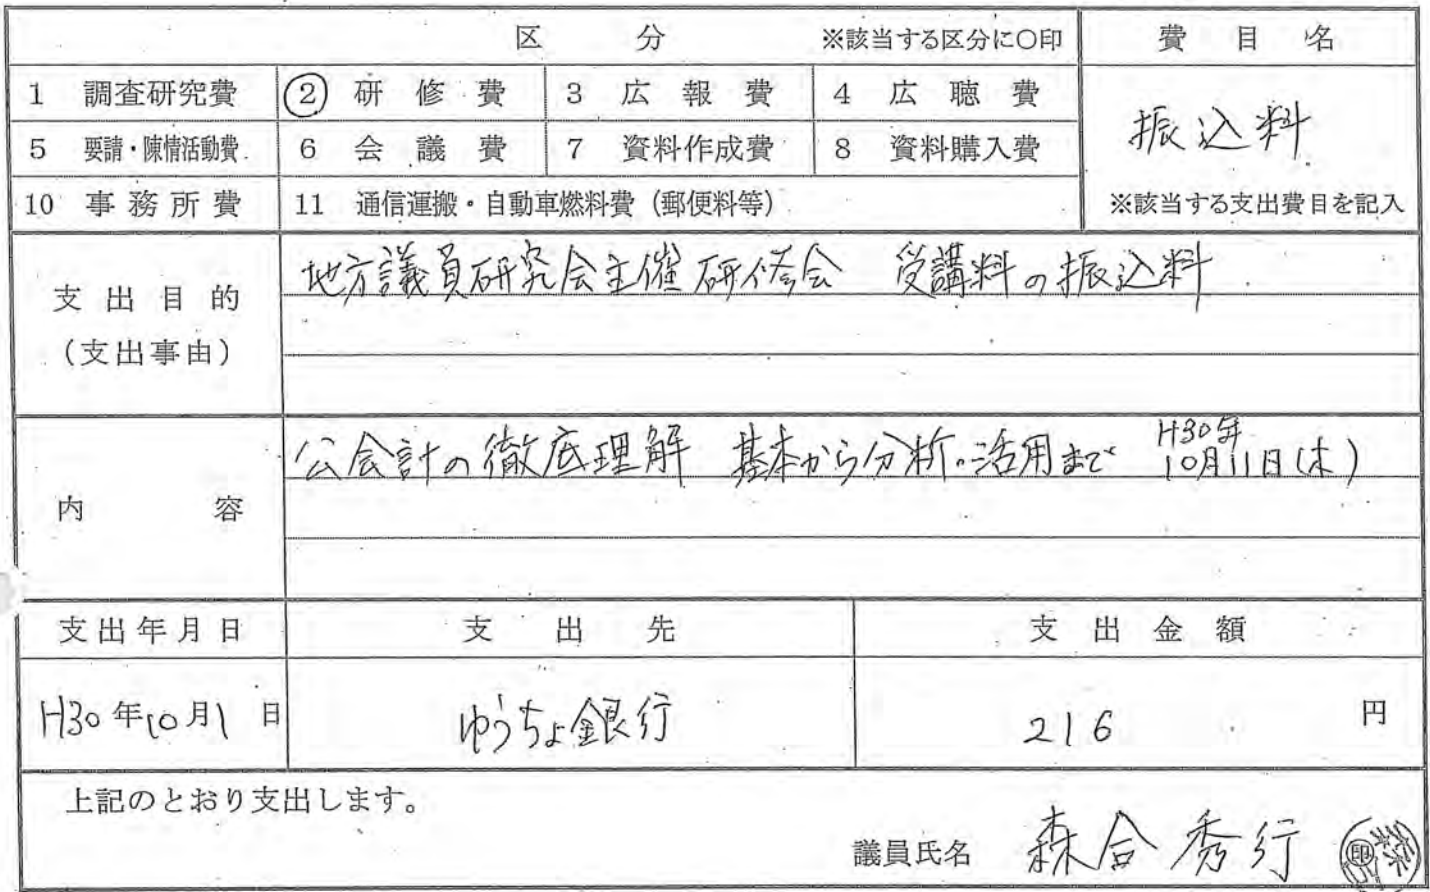 区 分 ※該当する区分に○印 費目名
1 調査研究費 ② 研修費 3 広報費 4 広聴費
振込料
5 要請・陳情活動費 6 会議費 7 資料作成費 8 資料購入費
10 事務所費 11 通信運搬・自動車燃料費（郵便料等） ※該当する支出費目を記入
支出目的
（支出事由）
地方議員研究会主催研修会 受講料の振込料
内 容
公会計の徹底理解 基本から分析・活用まで H30年
10月11日(木)
支出年月日 支出先 支出金額
H30年10月1日 ゆうちょ銀行 216 円
上記のとおり支出します。
議員氏名 森合秀行 印